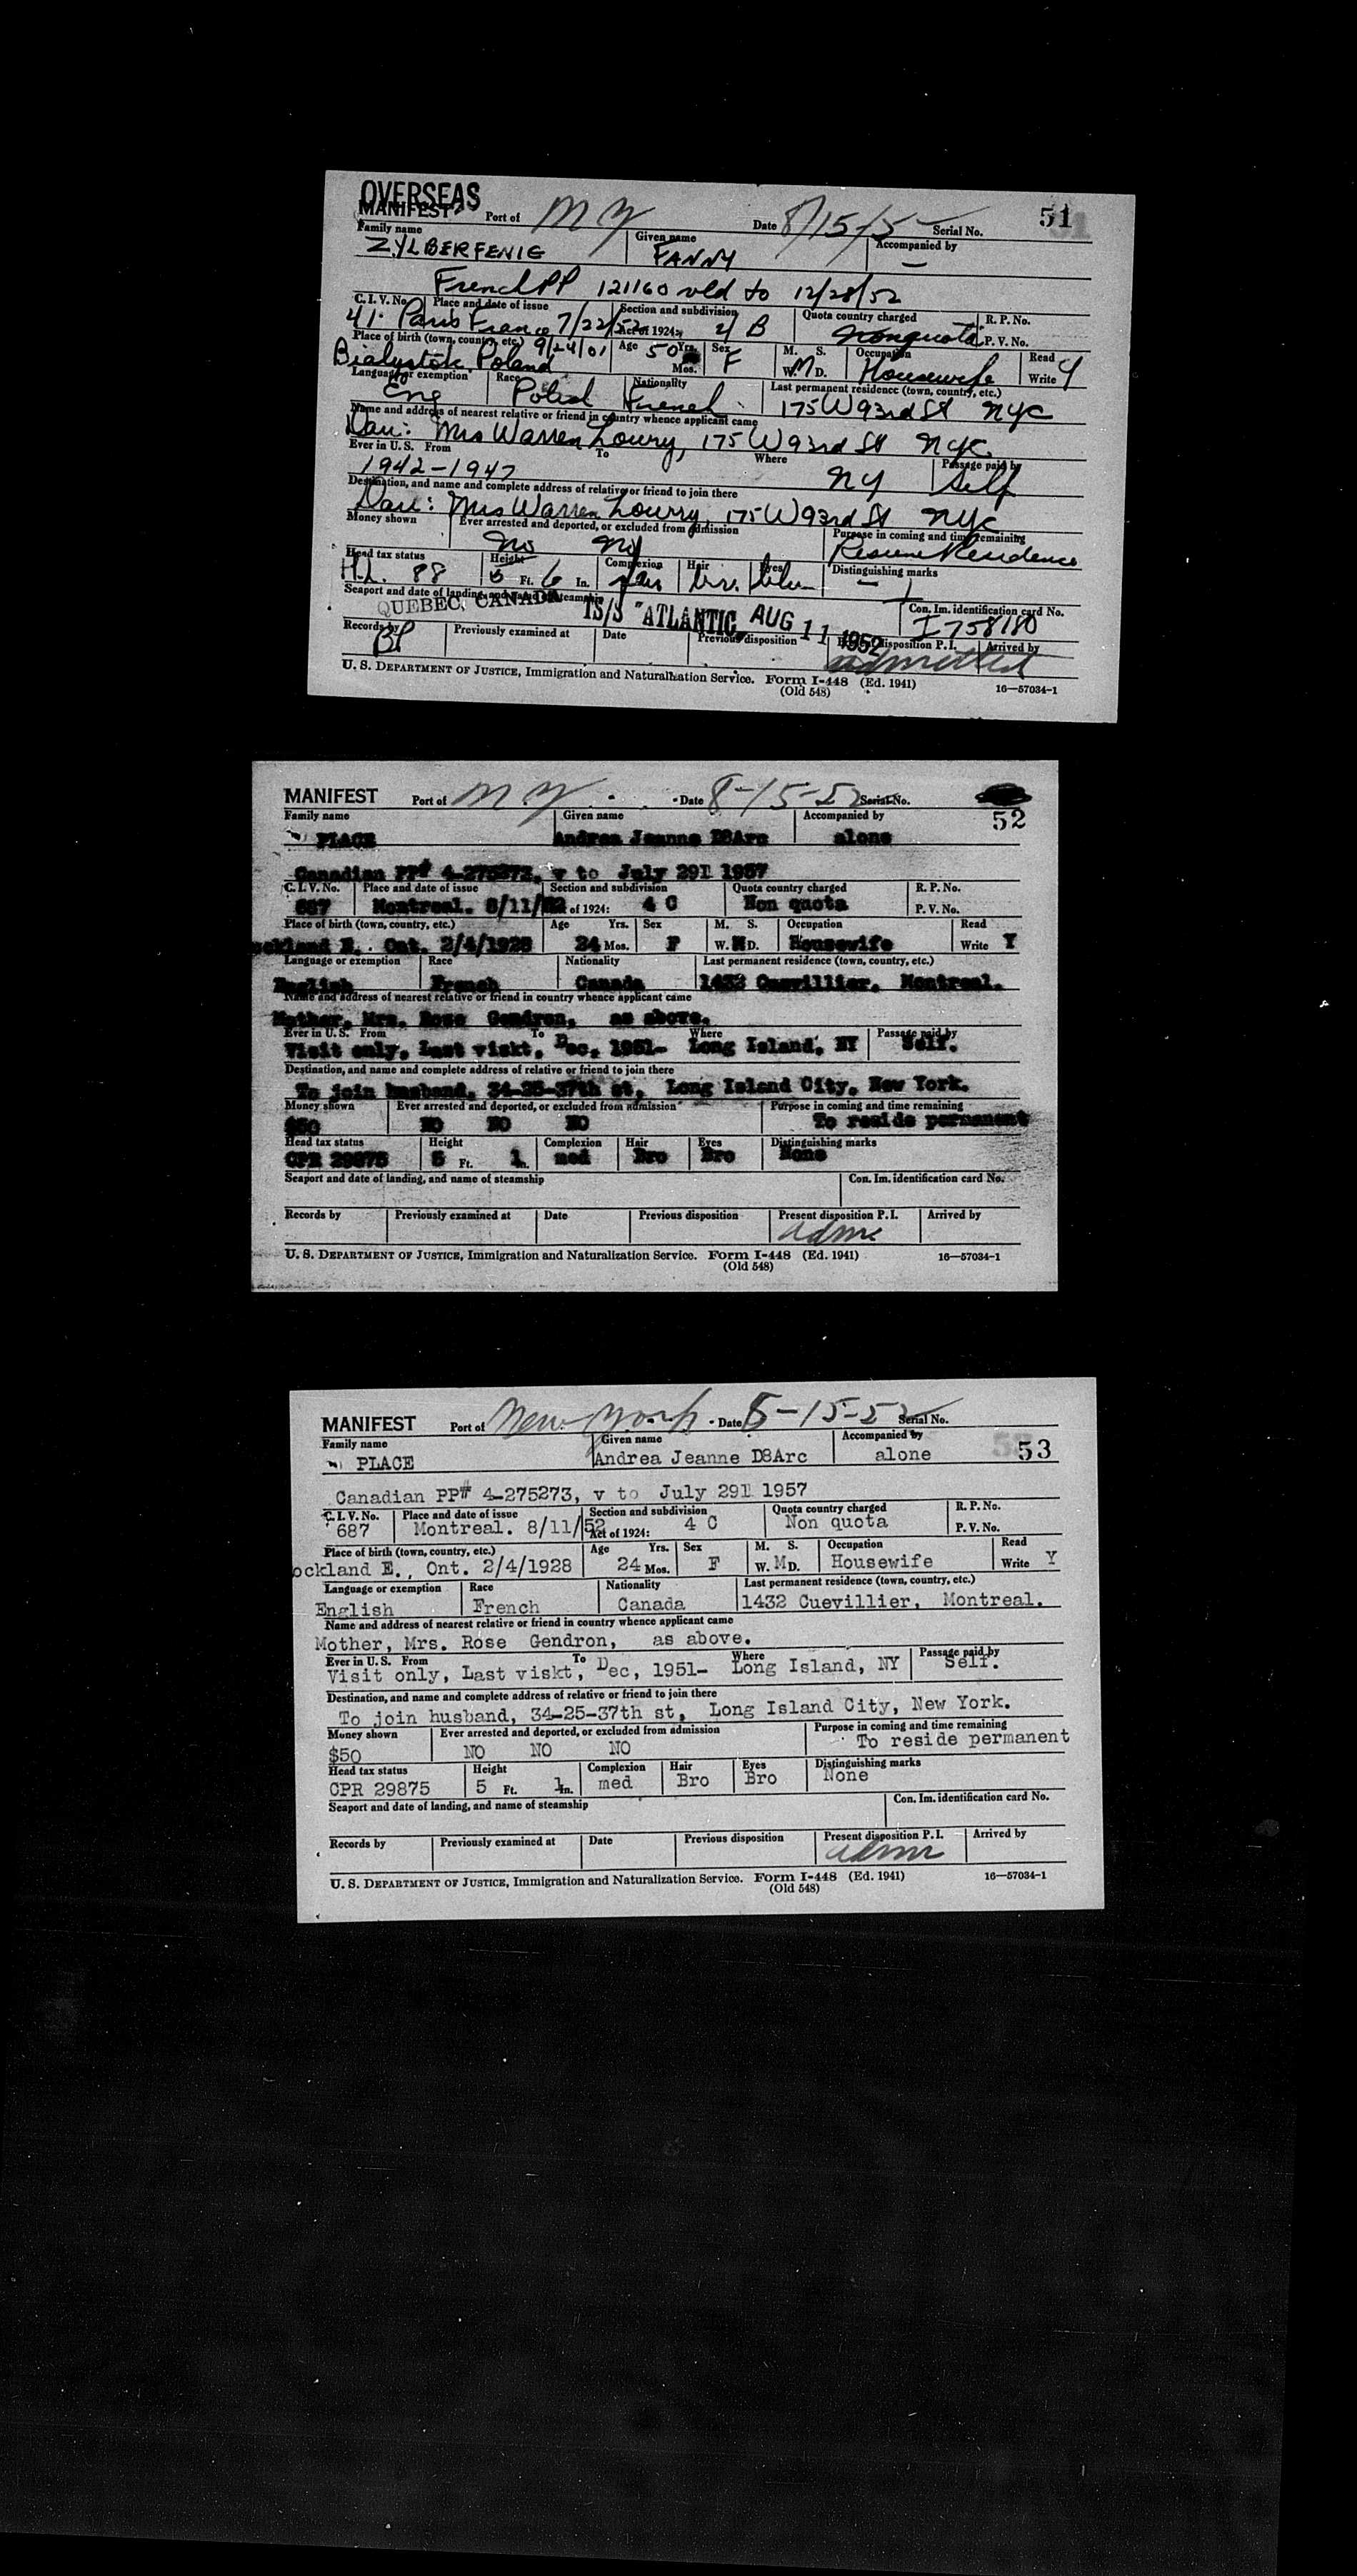 OVERSEAS
MANIFEST Port of N Y Date 8/15/5 Serial No. 51
Family name Given name Accompanied by
ZYLBERFENIG FANNY —
French PP 121160 vld to 12/28/52
C. I. V. No. Place and date of issue Section and subdivision Quota country charged R. P. No.
41 Paris France 7/22/52 Act of 1924: 4 B Nonquota P. V. No.
Place of birth (town, country, etc.) 9/24/01 Age 50 Yrs. Sex M. S. Occupation Read
Bialystok Poland Mos. F W. M D. Housewife Write Y
Language or exemption Race Nationality Last permanent residence (town, country, etc.)
Eng Polish French 175 W 93rd St NYC
Name and address of nearest relative or friend in country whence applicant came
Dau: Mrs Warren Lowry, 175 W 93rd St NYC
Ever in U. S. From To Where Passage paid by
1942-1947 NY Self
Destination, and name and complete address of relative or friend to join there
Dau: Mrs Warren Lowry, 175 W 93rd St NYC
Money shown Ever arrested and deported, or excluded from admission Purpose in coming and time remaining
No No Resume Residence
Head tax status Height Complexion Hair Eyes Distinguishing marks
88 5 Ft. 6 In. fair br. blu —
Seaport and date of landing, and name of steamship Con. Im. identification card No.
QUEBEC, CANADA TS/S "ATLANTIC, AUG 11 1952 I758180
Records by Previously examined at Date Previous disposition Present disposition P. I. Arrived by
BP admitted
U. S. DEPARTMENT OF JUSTICE, Immigration and Naturalization Service. Form I-448 (Ed. 1941) 16—57034-1
(Old 548)
MANIFEST Port of N.Y. Date 8-15-52 Serial No.
52
Family name Given name Accompanied by
PLACE Andrea Jeanne D8Arc alone
Canadian PP# 4-275273, v to July 291 1957
C. I. V. No. Place and date of issue Section and subdivision Quota country charged R. P. No.
687 Montreal. 8/11/52 of 1924: 4 C Non quota P. V. No.
Place of birth (town, country, etc.) Age Yrs. Sex M. S. Occupation Read
ockland E., Ont. 2/4/1928 24 Mos. F W. M D. Housewife Write Y
Language or exemption Race Nationality Last permanent residence (town, country, etc.)
English French Canada 1432 Cuevillier, Montreal.
Name and address of nearest relative or friend in country whence applicant came
Mother, Mrs. Rose Gendron, as above.
Ever in U. S. From To Where Passage paid by
Visit only, Last viskt, Dec, 1951- Long Island, NY Self.
Destination, and name and complete address of relative or friend to join there
To join husband, 34-25-37th st, Long Island City, New York.
Money shown Ever arrested and deported, or excluded from admission Purpose in coming and time remaining
$50 NO NO NO To reside permanent
Head tax status Height Complexion Hair Eyes Distinguishing marks
CPR 29875 5 Ft. 1 In. med Bro Bro None
Seaport and date of landing, and name of steamship Con. Im. identification card No.
Records by Previously examined at Date Previous disposition Present disposition P. I. Arrived by
adm
U. S. DEPARTMENT OF JUSTICE, Immigration and Naturalization Service. Form I-448 (Ed. 1941) 16—57034-1
(Old 548)
MANIFEST Port of New York Date 8-15-52 Serial No.
Family name Given name Accompanied by 53
PLACE Andrea Jeanne D8Arc alone
Canadian PP# 4-275273, v to July 291 1957
C. I. V. No. Place and date of issue Section and subdivision Quota country charged R. P. No.
687 Montreal. 8/11/52 Act of 1924: 4 C Non quota P. V. No.
Place of birth (town, country, etc.) Age Yrs. Sex M. S. Occupation Read
ockland E., Ont. 2/4/1928 24 Mos. F W. M D. Housewife Write Y
Language or exemption Race Nationality Last permanent residence (town, country, etc.)
English French Canada 1432 Cuevillier, Montreal.
Name and address of nearest relative or friend in country whence applicant came
Mother, Mrs. Rose Gendron, as above.
Ever in U. S. From To Where Passage paid by
Visit only, Last viskt, Dec, 1951- Long Island, NY Self.
Destination, and name and complete address of relative or friend to join there
To join husband, 34-25-37th st, Long Island City, New York.
Money shown Ever arrested and deported, or excluded from admission Purpose in coming and time remaining
$50 NO NO NO To reside permanent
Head tax status Height Complexion Hair Eyes Distinguishing marks
CPR 29875 5 Ft. 1 In. med Bro Bro None
Seaport and date of landing, and name of steamship Con. Im. identification card No.
Records by Previously examined at Date Previous disposition Present disposition P. I. Arrived by
adm
U. S. DEPARTMENT OF JUSTICE, Immigration and Naturalization Service. Form I-448 (Ed. 1941) 16—57034-1
(Old 548)